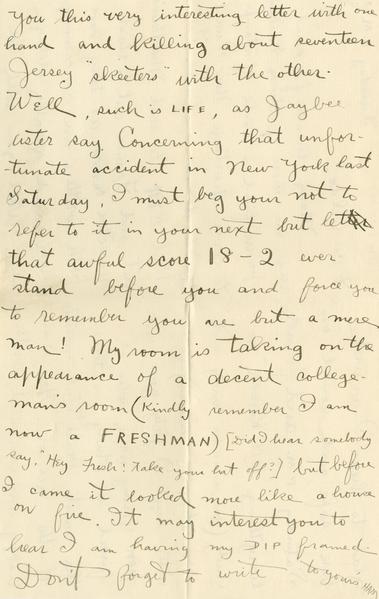 you this very interesting letter with one
hand and killing about seventeen
Jersey "skeeters" with the other.
Well, such is LIFE, as Jaybee
uster say Concerning that unfor-
tunate accident in New York last
Saturday, I must beg your not to
refer to it in your next but let
that awful score 18-2 ever
stand before you and force you
to remember you are but a mere
man! My room is taking on the
appearance of a decent college-
man's room (Kindly remember I am
now a FRESHMAN) [Did I hear somebody
say, "Hey Fresh! take your hat off?] but before
I came it looked more like a house
on fire. It may interest you to
hear I am having my DIP framed.
Don't forget to write to yours